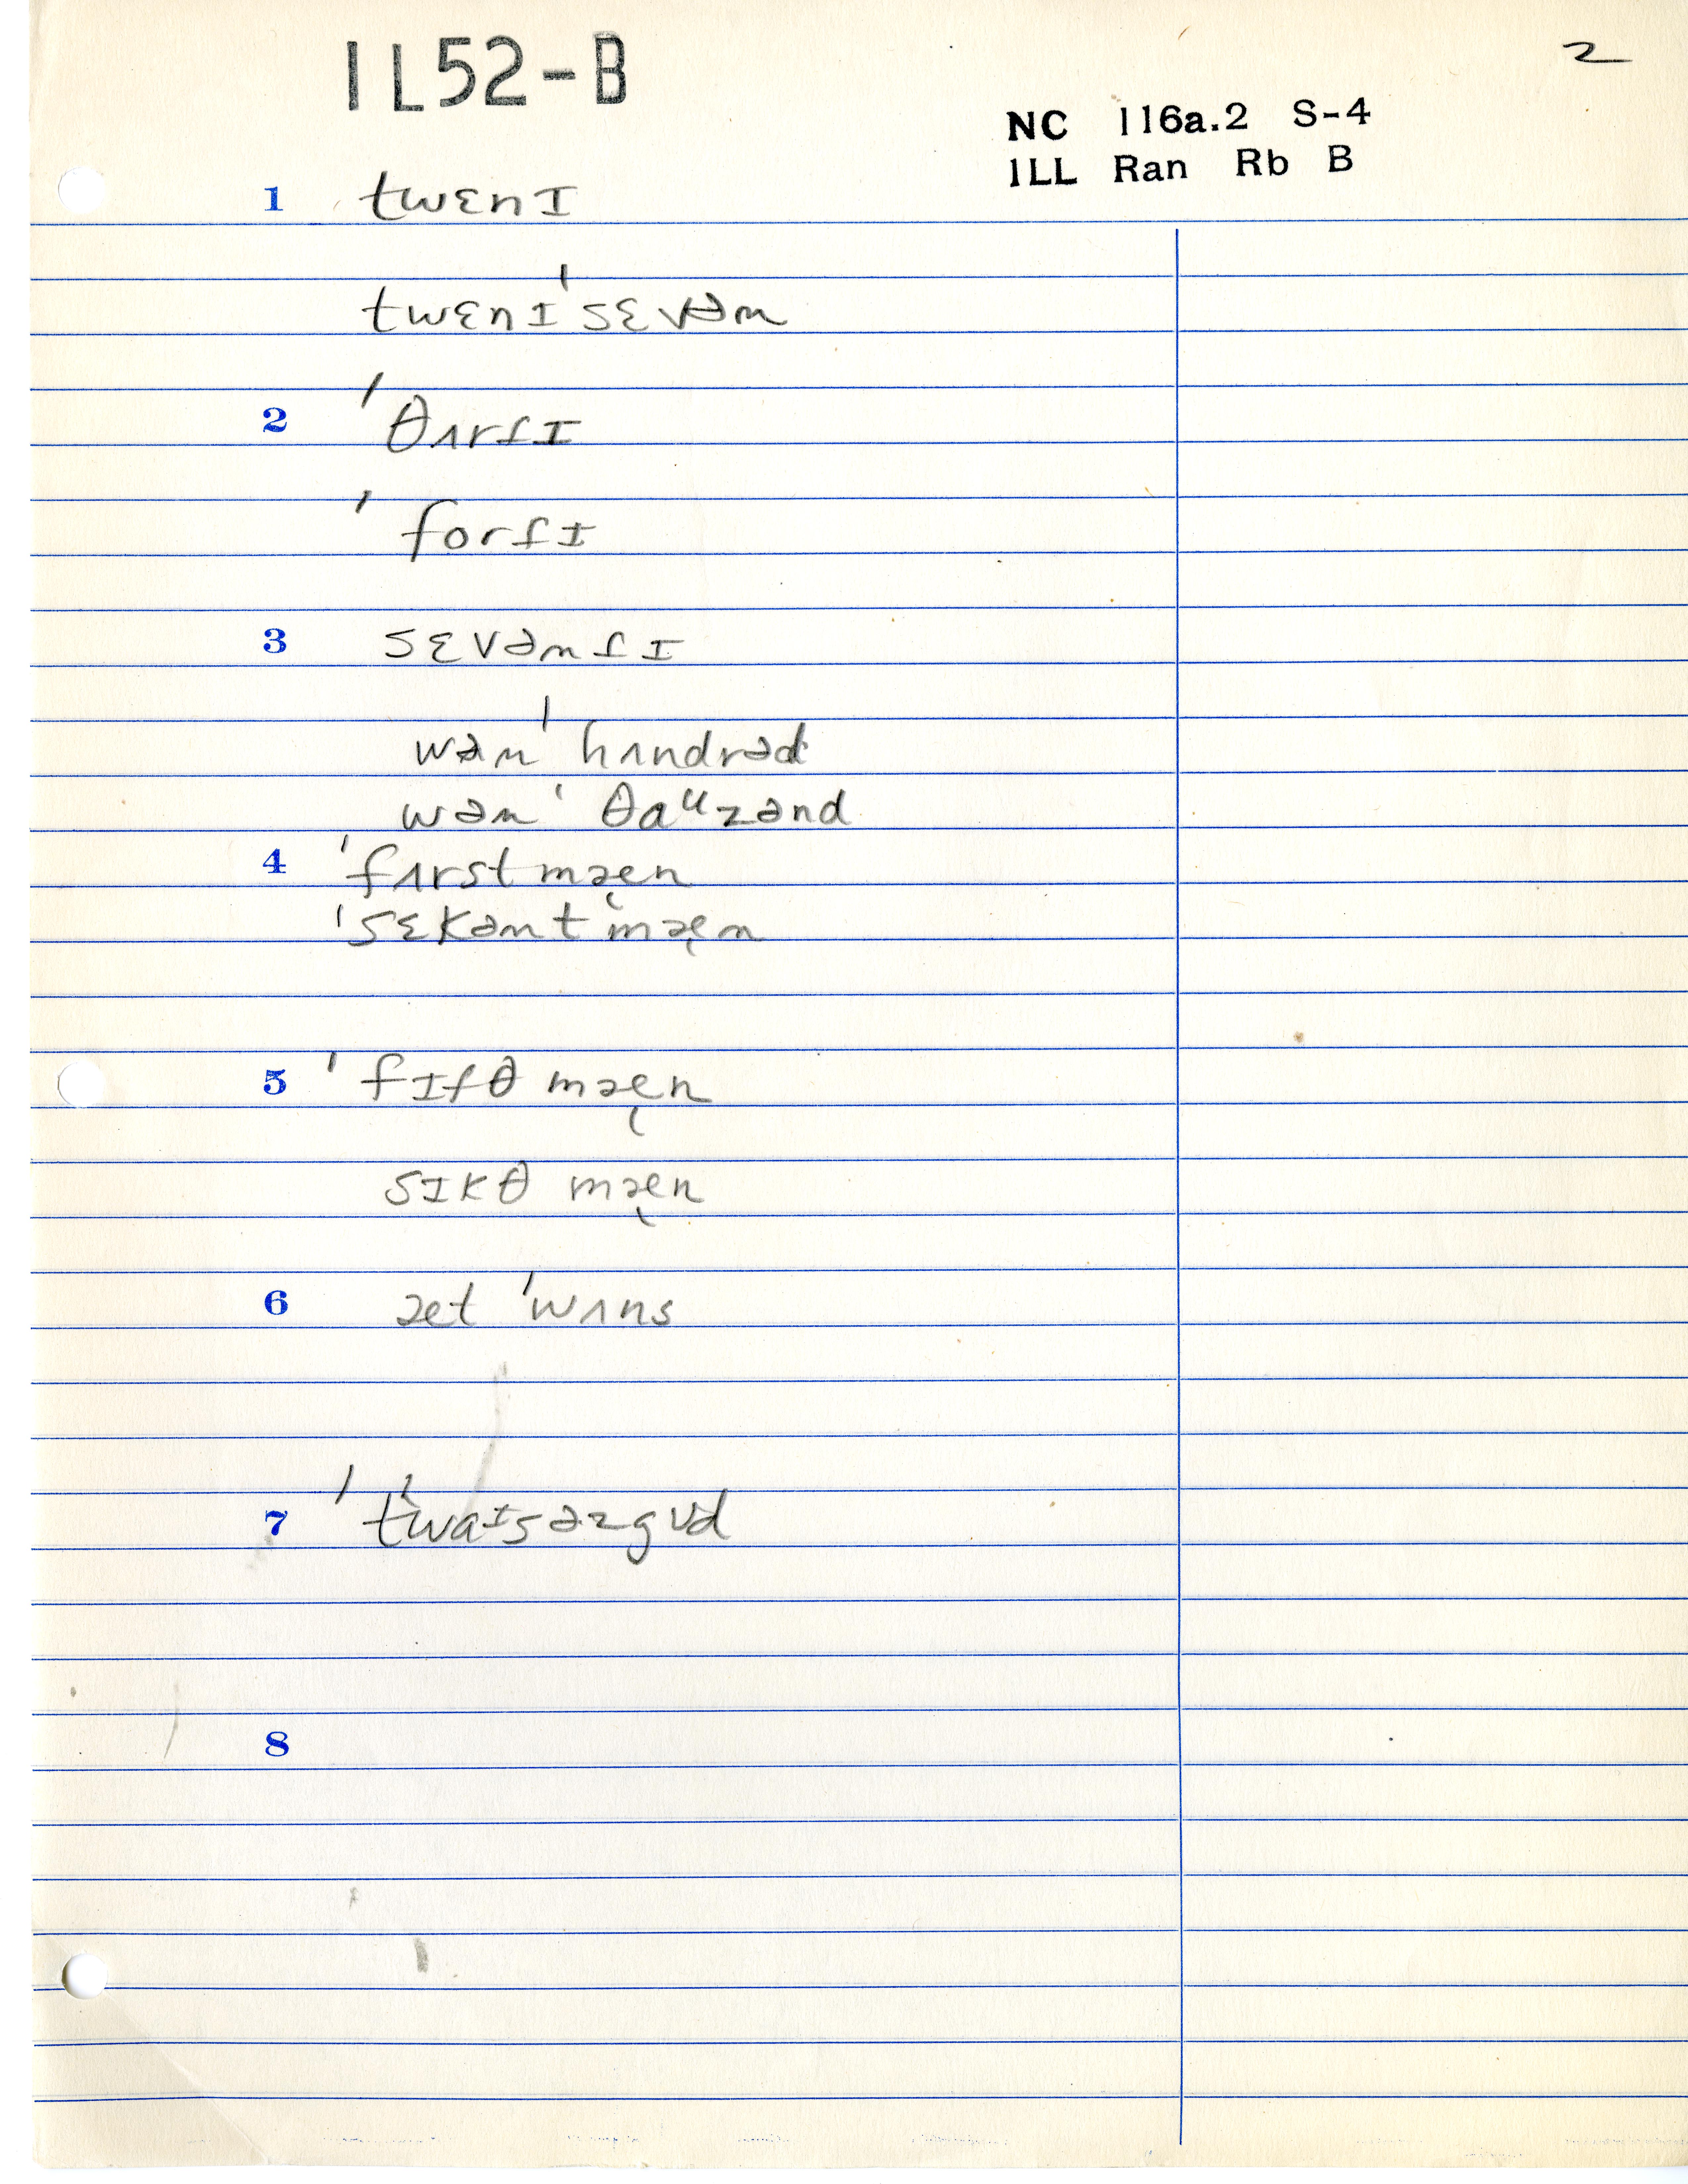 1L52-B
2
NC 116a.2 S-4
1LL Ran Rb B
1 twɛnɪ
twɛnɪˈsɛvəm
2 ˈθʌrſɪ
ˈforſɪ
3 sɛvəmſɪ
wənˈhʌndrəd
wənˈθaᵘzənd
4 ˈfʌrstmæn
ˈsɛkəntmæ̨n
5 ˈfɪfθ mæ̨n
sɪkθ mæ̨n
6 æt ˈwʌns
7 ˈtwaᶦsəzgʊd
8